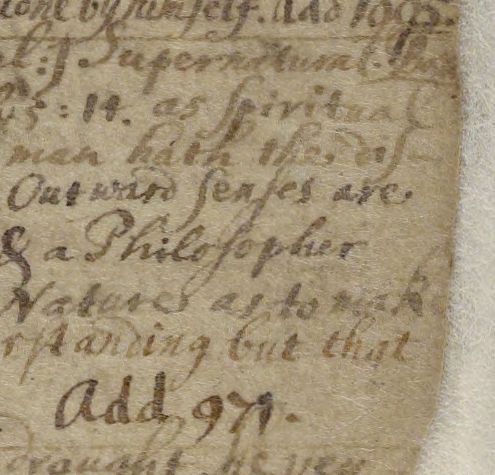 done by himself. Add 1095.
al:] Supernatural.
: 14. as spiritual
man hath the
Outward senses are
& a Philosopher
Nature as to make
rstanding but that
Add 971.
draught never